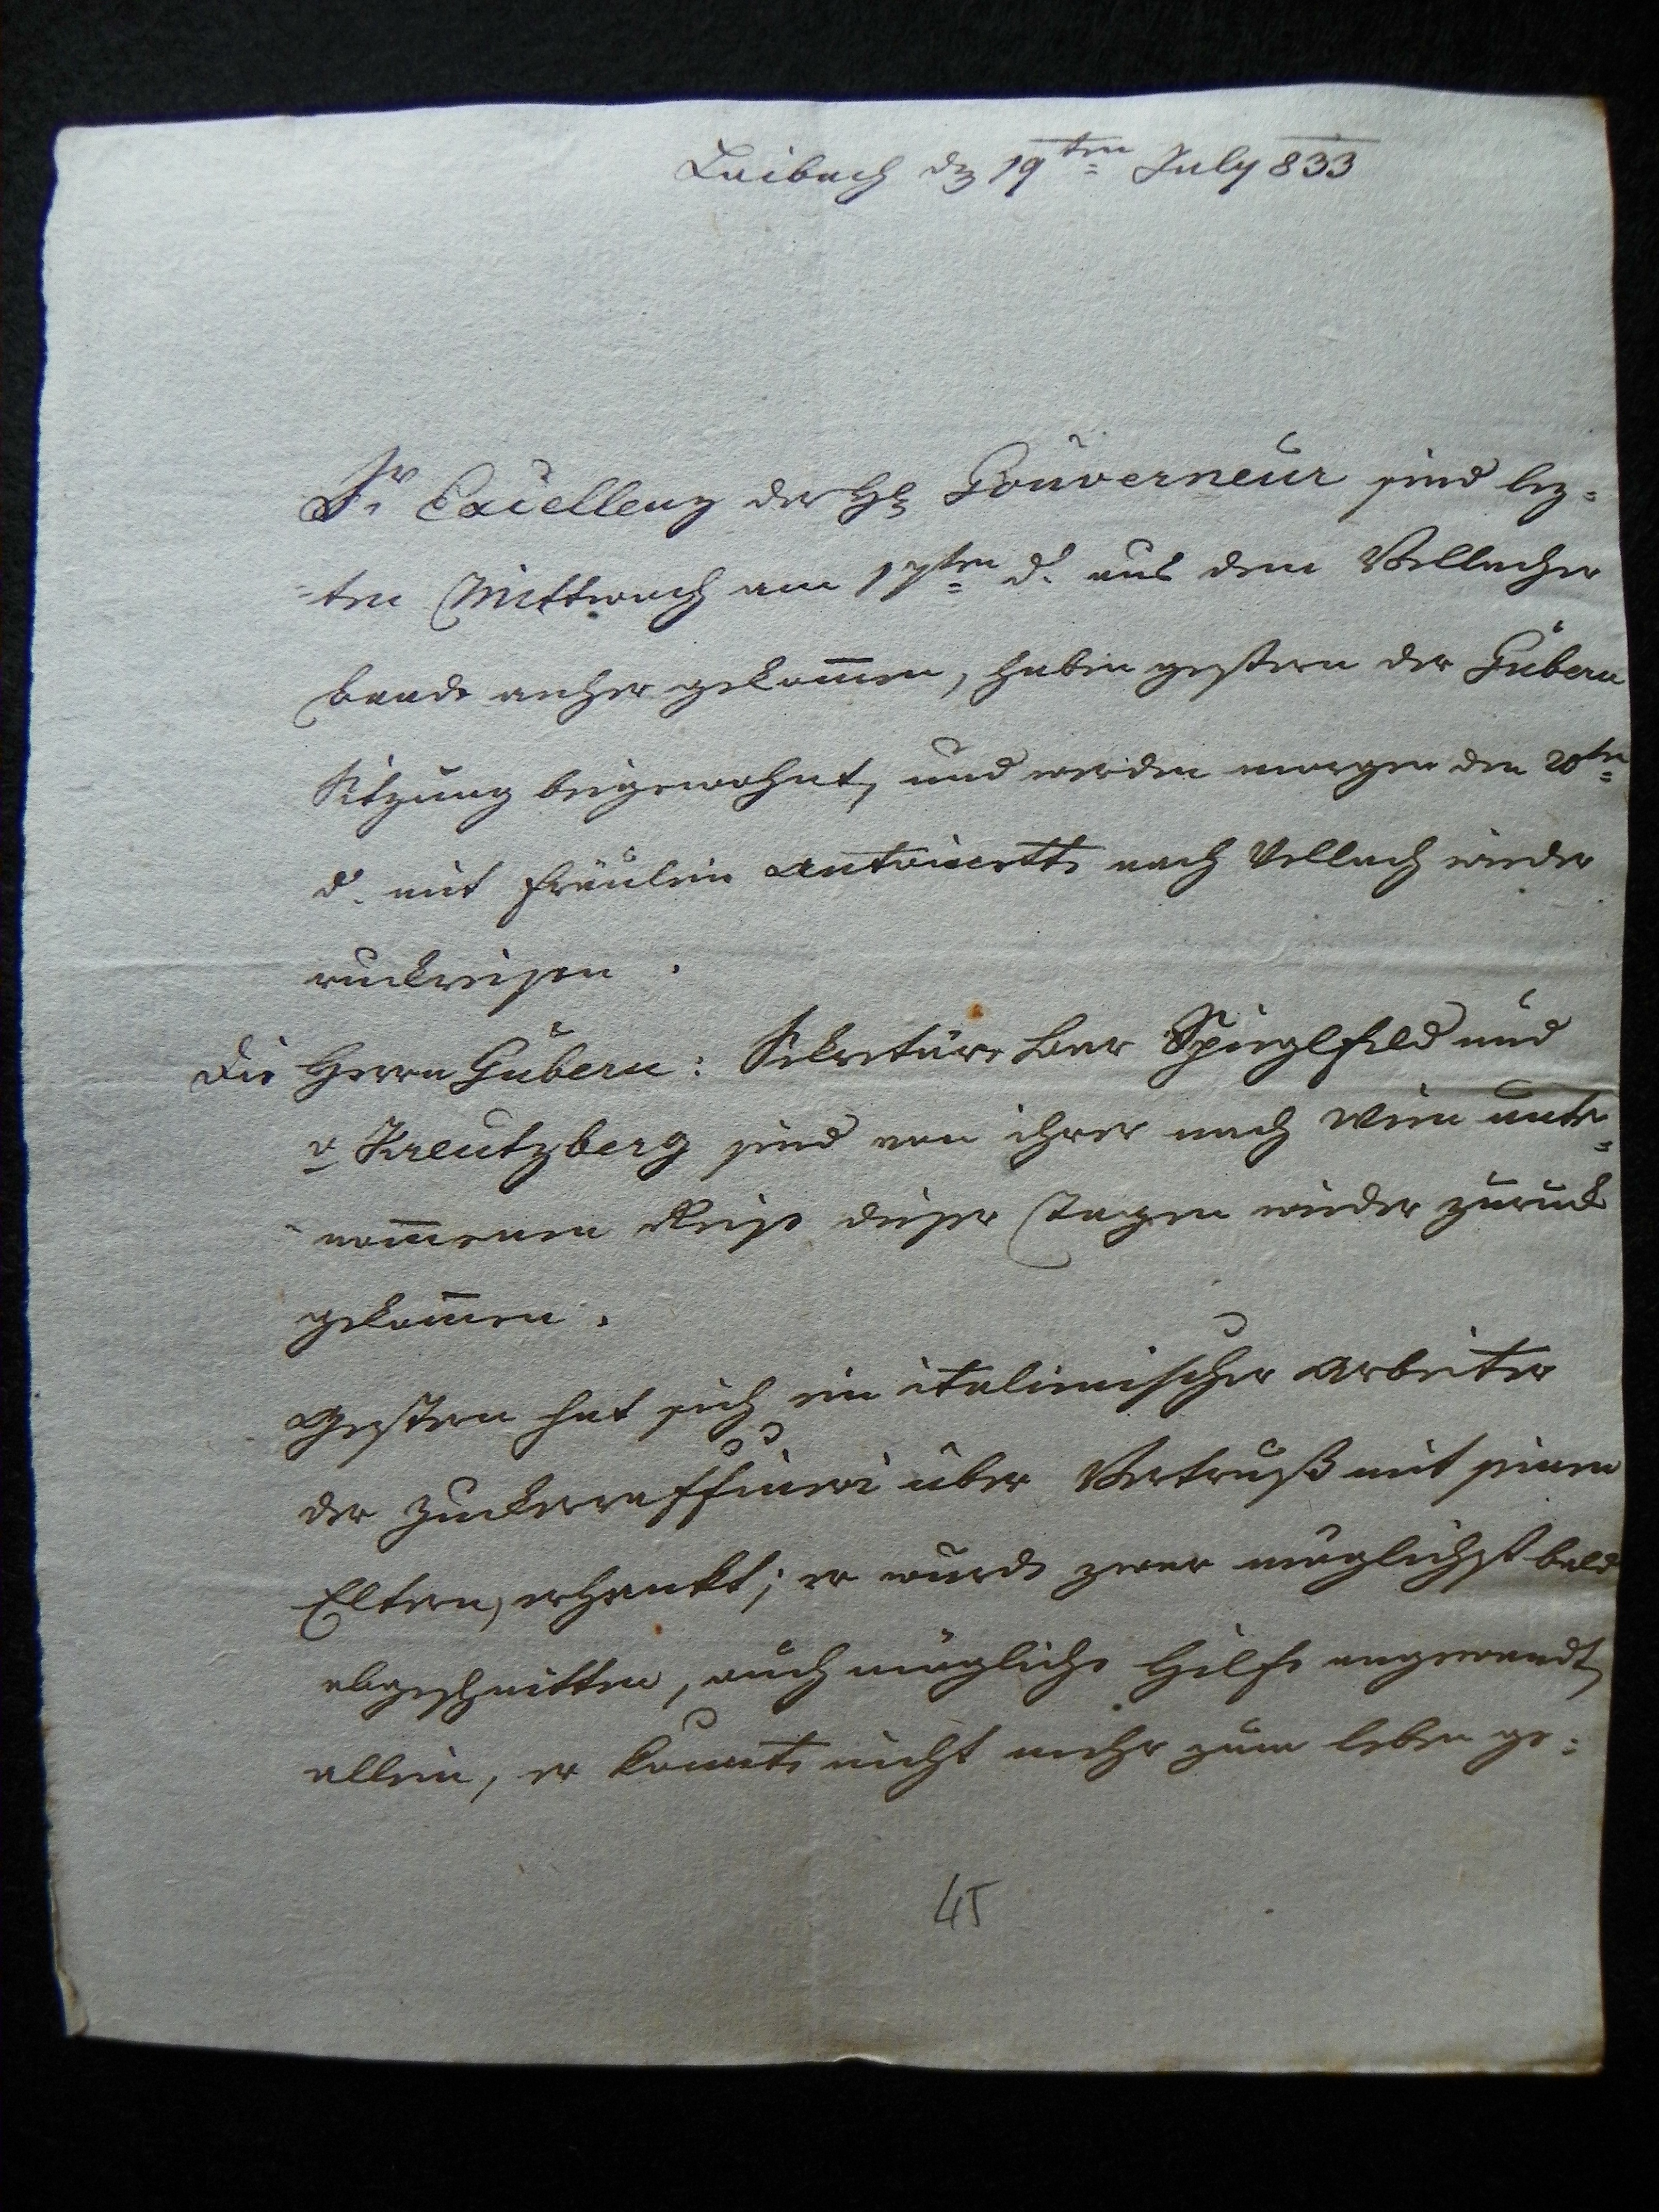 Laibach den 19ten July 833
Sr Excellenz der Hr Gouverneur sind lez=
=ten Mittwoch am 17ten d. aus dem Vellacher
baade anher gekom̅en, haben gestern der Gubern
Sitzung beigewohnt, und werden morgen den 20ten
d. mit Fräulein Antoinette nach Vellach wieder
ruckreisen.
Die Herrn Gubern: Sekretäre Bar Spieglfeld und
v Kreutzberg sind von ihrer nach Wien unter=
nom̅enen Reise dieser Tagen wieder zurück
gekom̅en.
Gestern hat sich ein italienischer Arbeiter
der Zuckerraffinerie über Vertruß mit seinen
Eltern, erhenkt; er wurde zwar möglichst bald
abgeschnitten, auch mögliche Hilfe angewandt,
allein, er konnte nicht mehr zum leben ge=
45